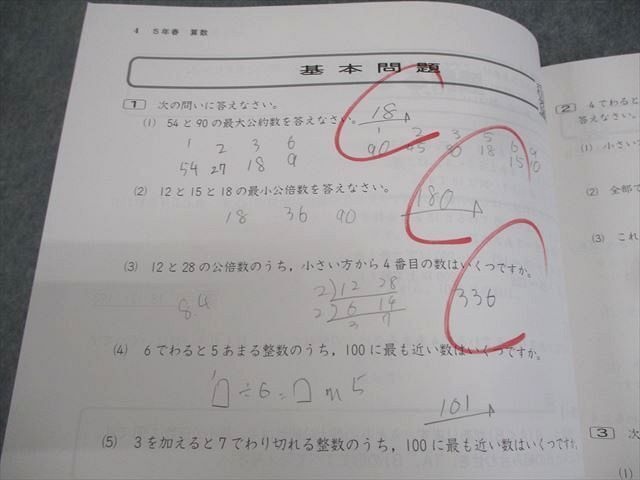 4 5年春 算数
基本問題
1 次の問いに答えなさい。
(1) 54と90の最大公約数を答えなさい。
18
1 2 3 6
54 27 18 9
1 2 3 5 6 9
90 45 30 18 15 10
(2) 12と15と18の最小公倍数を答えなさい。
180
18 36 90
(3) 12と28の公倍数のうち，小さい方から4番目の数はいくつですか。
84
2)12 28
2)6 14
3 7
336
(4) 6でわると5あまる整数のうち，100に最も近い数はいくつですか。
÷6=
5
101
(5) 3を加えると7でわり切れる整数のうち，100に最も近い数はいくつですか
2 4でわると
答えなさい。
(1) 小さい
(2) 全部で
(3) これ
3 次
(1)